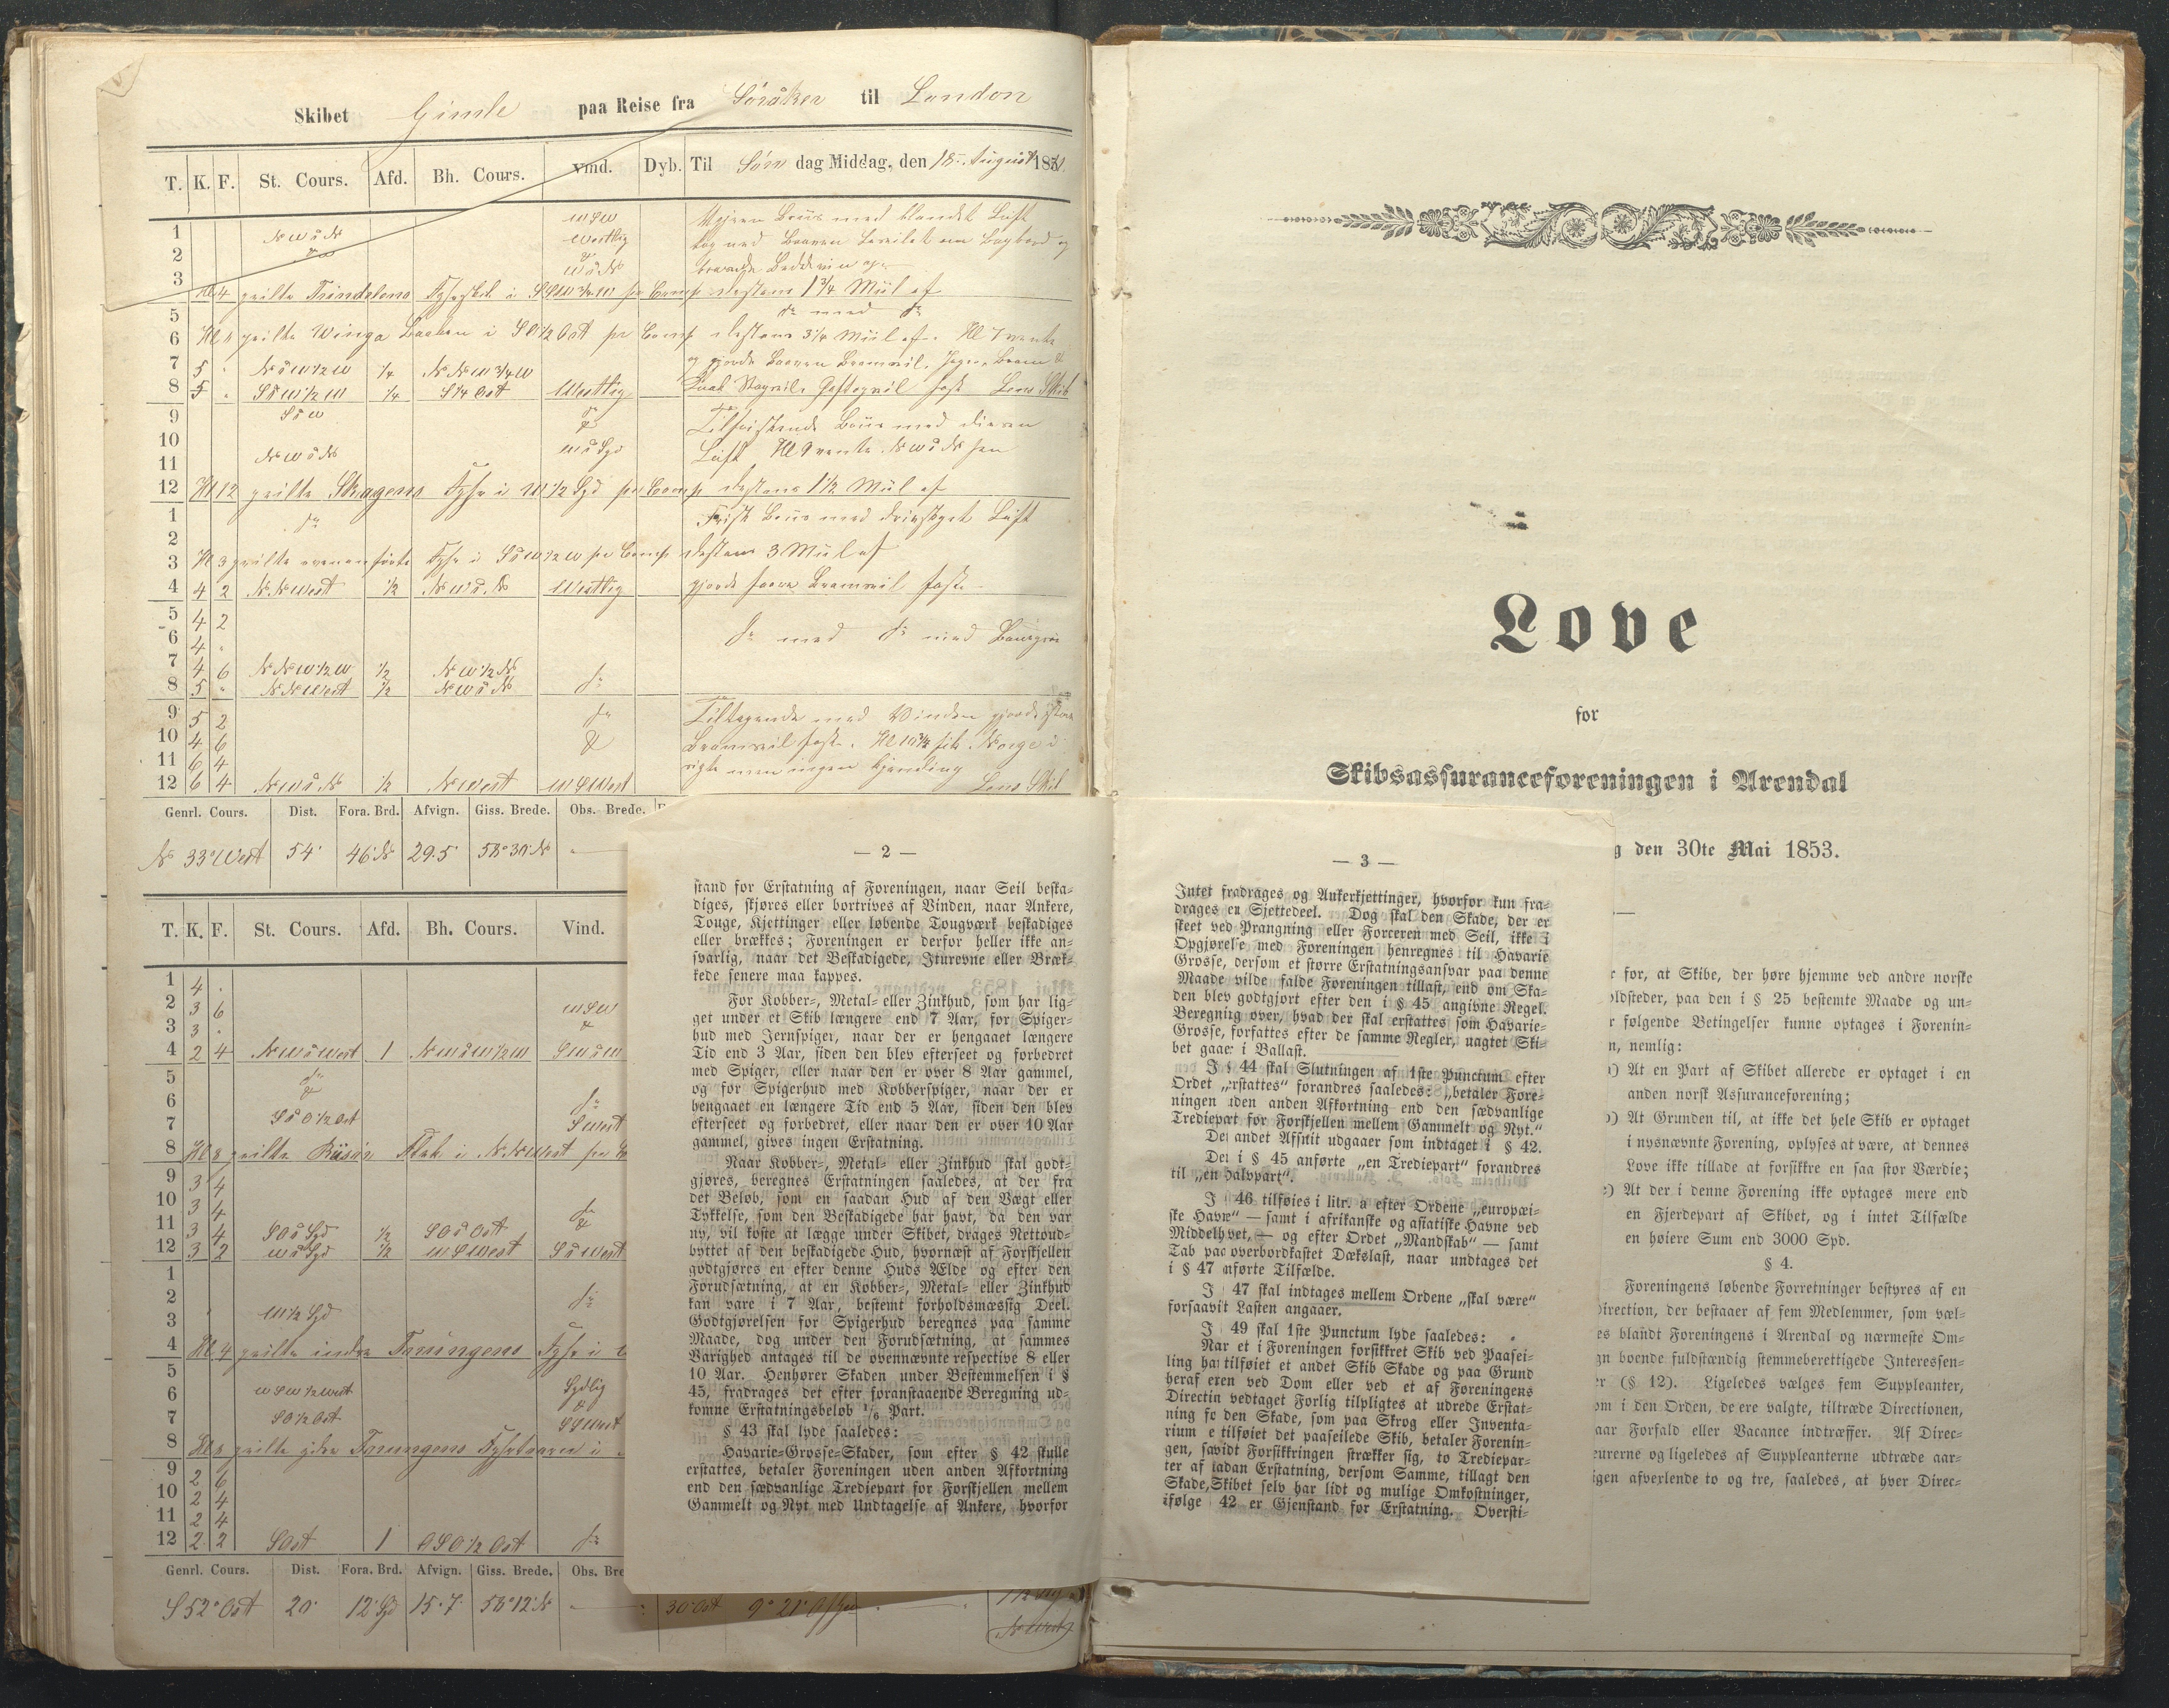 Skibet Gimle paa Reise fra Söråker til London
T. K. F. St. Cours. Afd. Bh. Cours. Vind. Dyb. Til Søn dag Middag, den 18 August 18
1 WSW
2 NWaN Westlig
3 WaN
Kl 4 peilte Trindelens Fyrskib i SSW 3/4 W pr Comp Distans 1 3/4 Miil af
5
6 Kl peilte Winga Baaken i SO 1/2 Ost pr Comp Distans 3 1/4 Miil af.
7 5 . 1/4 NNW 3/4 W
8 5 . 1/4 S 1/4 Ost Westlig Lens Skib
9 SaW
10
11 NWaN WaSyd Luft
12 Kl 12 peilte Skagens Fyr i W 1/2 Syd pr Comp Distans 1 1/2 Miil af
1 Frisk med Luft
2
3 Kl 3 peilte Fyr i pr Comp Distans 3 Miil af
4 4 2 NNWest 1/2 NWaN Westlig gjorde Bramseil fast
5 4 2
6 4 .
7 4 6 NNW 1/2 W 1/2 NW 1/2 N
8 5 . NNWest 1/2 NWaN
9 5 2 Tiltagende med Vinden gjorde
10 4 6 Bramseil fast. Norge i
11 6 4 sigte men ingen Kjending
12 6 4 NWaN 1/2 NWest WSWest Lens Skib
Genrl. Cours. Dist. Fora. Brd. Afvign. Giss. Brede. Obs. Brede.
N 33° West 54' 46' N 29.5 58° 30' N
T. K. F. St. Cours. Afd. Bh. Cours. Vind.
1 4 .
2 3 6 WSW
3 3 .
4 2 4 NWaWest 1 NWaW 1/2 W SWaW
5
6
7 SaO 1/2 Ost SWest
8 Kl 8 peilte Risör Flak i NNWest pr
9 3 4
10 3 4
11 3 4 SOaSyd 1/2 SOaOst
12 3 2 WaSyd 1/2 WSWest SaWest
1
2
3 W 1/2 Syd
4 Kl 4 peilte indre Torungens Fyr i
5
6 WSW 1/2 West Sydlig
7 SO 1/2 Ost SSWest
8 Kl 8 peilte ydre Torungens Fyrtaarn i
9 2 6
10 2 4
11 2 4
12 2 2 SOst 1 OSO 1/2 Ost
Genrl. Cours. Dist. Fora. Brd. Afvign. Giss. Brede. Obs. Bre
S 52° Ost 20' 12' Syd 15.7 58° 12' N 30' Ost 9° 21'
— 2 —
stand for Erstatning af Foreningen, naar Seil beska-
diges, skjøres eller bortrives af Vinden, naar Ankere,
Touge, Kjettinger eller løbende Tougværk beskadiges
eller brækkes; Foreningen er derfor heller ikke an-
svarlig, naar det Beskadigede, Iturevne eller Bræk-
kede senere maa kappes.
For Kobber-, Metal- eller Zinkhud, som har lig-
get under et Skib længere end 7 Aar, for Spiger-
hud med Jernspiger, naar der er hengaaet længere
Tid end 3 Aar, siden den blev efterseet og forbedret
med Spiger, eller naar den er over 8 Aar gammel,
og for Spigerhud med Kobberspiger, naar der er
hengaaet en længere Tid end 5 Aar, siden den blev
efterseet og forbedret, eller naar den er over 10 Aar
gammel, gives ingen Erstatning.
Naar Kobber-, Metal- eller Zinkhud skal godt-
gjøres, beregnes Erstatningen saaledes, at der fra
det Beløb, som en saadan Hud af den Vægt eller
Tykkelse, som den Beskadigede har havt, da den var
ny, vil koste at lægge under Skibet, drages Nettoud-
byttet af den beskadigede Hud, hvornæst af Forskjellen
godtgjøres en efter denne Huds Ælde og efter den
Forudsætning, at en Kobber-, Metal- eller Zinkhud
kan vare i 7 Aar, bestemt forholdsmæssig Deel.
Godtgjørelsen for Spigerhud beregnes paa samme
Maade, dog under den Forudsætning, at sammes
Varighed antages til de ovennævnte respective 8 eller
10 Aar. Henhører Skaden under Bestemmelsen i §
45, fradrages det efter foranstaaende Beregning ud-
komne Erstatningsbeløb 1/6 Part.
§ 43 skal lyde saaledes:
Havarie-Grosse-Skader, som efter § 42 skulle
erstattes, betaler Foreningen uden anden Afkortning
end den sædvanlige Trediepart for Forskjellen mellem
Gammelt og Nyt med Undtagelse af Ankere, hvorfor
— 3 —
Intet fradrages og Ankerkjettinger, hvorfor kun fra-
drages en Sjettedeel. Dog skal den Skade, der er
skeet ved Prangning eller Forceren med Seil, ikke i
Opgjørelse med Foreningen henregnes til Havarie
Grosse, dersom et større Erstatningsansvar paa denne
Maade vilde falde Foreningen tillast, end om Ska-
den blev godtgjort efter den i § 45 angivne Regel.
Beregning over, hvad der skal erstattes som Havarie-
Grosse, forfattes efter de samme Regler, uagtet Ski-
bet gaaer i Ballast.
I § 44 skal Slutningen af 1ste Punctum efter
Ordet „erstattes" forandres saaledes: „betaler Fore-
ningen uden anden Afkortning end den sædvanlige
Trediepart for Forskjellen mellem Gammelt og Nyt."
Det andet Afsnit udgaaer som indtaget i § 42.
Det i § 45 anførte „en Trediepart" forandres
til „en Halvpart".
I 46 tilføies i litr. a efter Ordene „europæi-
ske Havne" — samt i afrikanske og asiatiske Havne ved
Middelhavet, — og efter Ordet „Mandskab" — samt
Tab paa overbordkastet Dækslast, naar undtages det
i § 47 anførte Tilfælde.
I 47 skal indtages mellem Ordene „skal være"
forsaavit Lasten angaaer.
I 49 skal 1ste Punctum lyde saaledes:
Nar et i Foreningen forsikkret Skib ved Paasei-
ling har tilføiet et andet Skib Skade og paa Grund
heraf enten ved Dom eller ved et af Foreningens
Direction vedtaget Forlig tilpligtes at udrede Erstat-
ning for den Skade, som paa Skrog eller Inventa-
rium er tilføiet det paaseilede Skib, betaler Forenin-
gen, saavidt Forsikkringen strækker sig, to Trediepar-
ter af saadan Erstatning, dersom Samme, tillagt den
Skade, Skibet selv har lidt og mulige Omkostninger,
ifølge 42 er Gjenstand for Erstatning. Oversti-
Love
for
Skibsassuranceforeningen i Arendal
g den 30te Mai 1853.
r for, at Skibe, der høre hjemme ved andre norske
oldsteder, paa den i § 25 bestemte Maade og un-
r følgende Betingelser kunne optages i Forenin-
n, nemlig:
a) At en Part af Skibet allerede er optaget i en
anden norsk Assuranceforening;
b) At Grunden til, at ikke det hele Skib er optaget
i nysnævnte Forening, oplyses at være, at dennes
Love ikke tillade at forsikkre en saa stor Værdie;
c) At der i denne Forening ikke optages mere end
en Fjerdepart af Skibet, og i intet Tilfælde
en høiere Sum end 3000 Spd.
§ 4.
Foreningens løbende Forretninger bestyres af en
Direction, der bestaaer af fem Medlemmer, som væl-
es blandt Foreningens i Arendal og nærmeste Om-
gn boende fuldstændig stemmeberettigede Interessen-
er (§ 12). Ligeledes vælges fem Suppleanter,
om i den Orden, de ere valgte, tiltræde Directionen,
aar Forfald eller Vacance indtræffer. Af Direc-
eurerne og ligeledes af Suppleanterne udtræde aar-
igen afverlende to og tre, saaledes, at hver Direc-